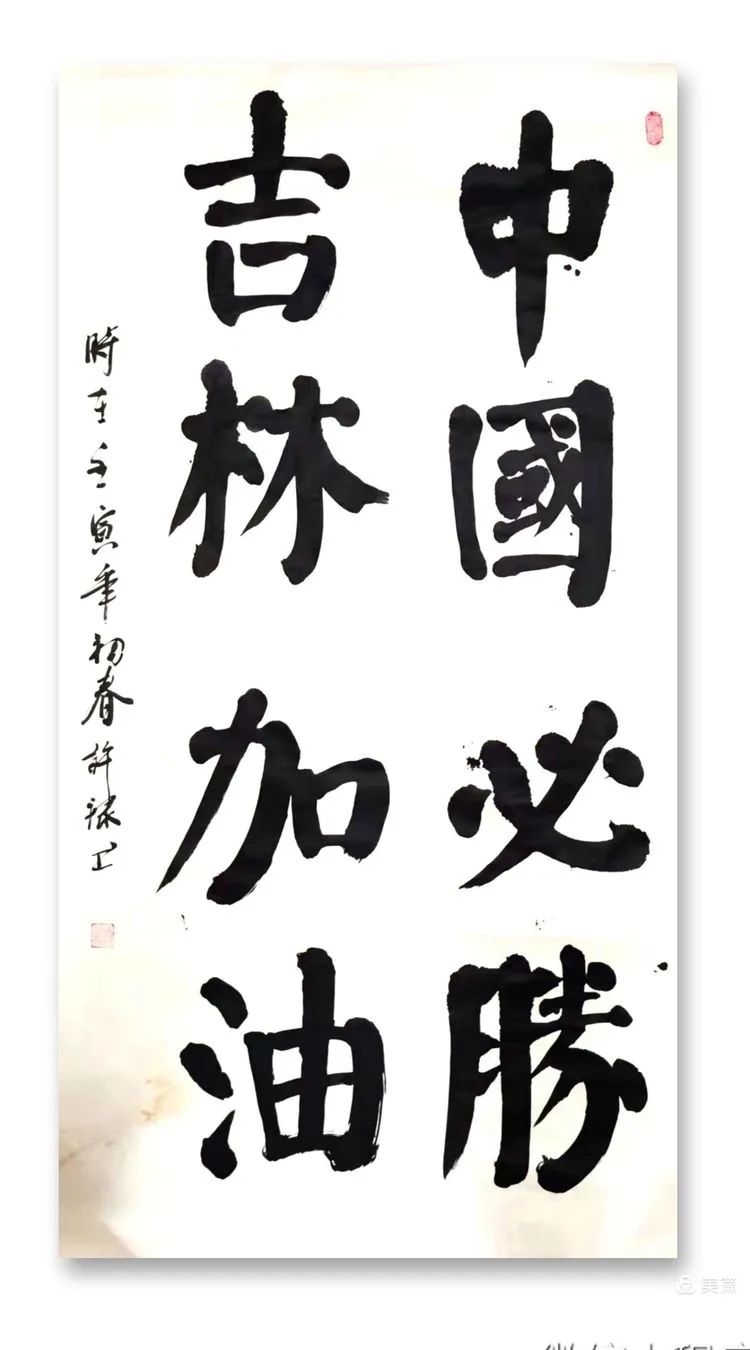 中國必勝
吉林加油
時在壬寅年初春許
美篇